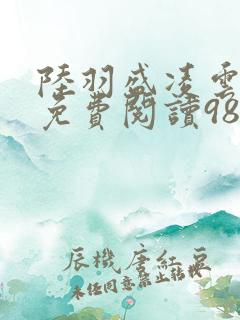 陸羽盛凌雲
免費閱讀98
辰機唐紅豆
未經同意禁止轉載